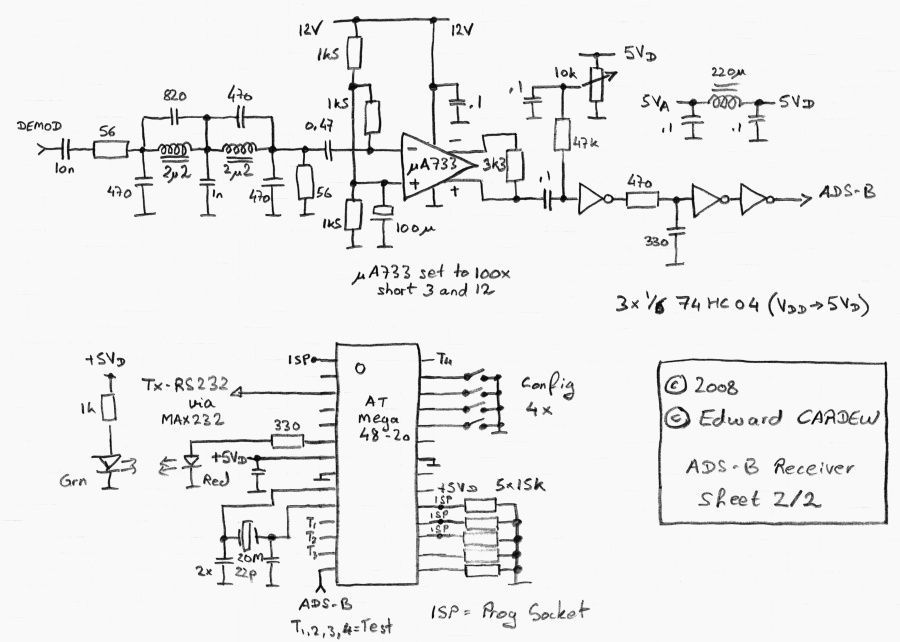 12V
12V
1k5
5VD
10k
220µ
820
470
1k5
.1
.1
5VA
5VD
.1
.1
DEMOD
56
0,47
47k
10n
2µ2
2µ2
µA733
3k3
470
1n
470
56
.1
470
ADS-B
1k5
100µ
330
µA733 set to 100x
short 3 and 12
3x 1/6 74HC04 (VDD→5VD)
+5VD
ISP
T4
Tx-RS232
via
MAX232
1k
AT
mega
48-20
Config
4x
330
+5VD
Grn
Red
+5VD
5x15k
ISP
ISP
ISP
T1
T2
T3
20M
2x
22p
ADS-B
T1,2,3,4=Test
ISP = Prog Socket
© 2008
© Edward CARDEW
ADS-B Receiver
Sheet 2/2